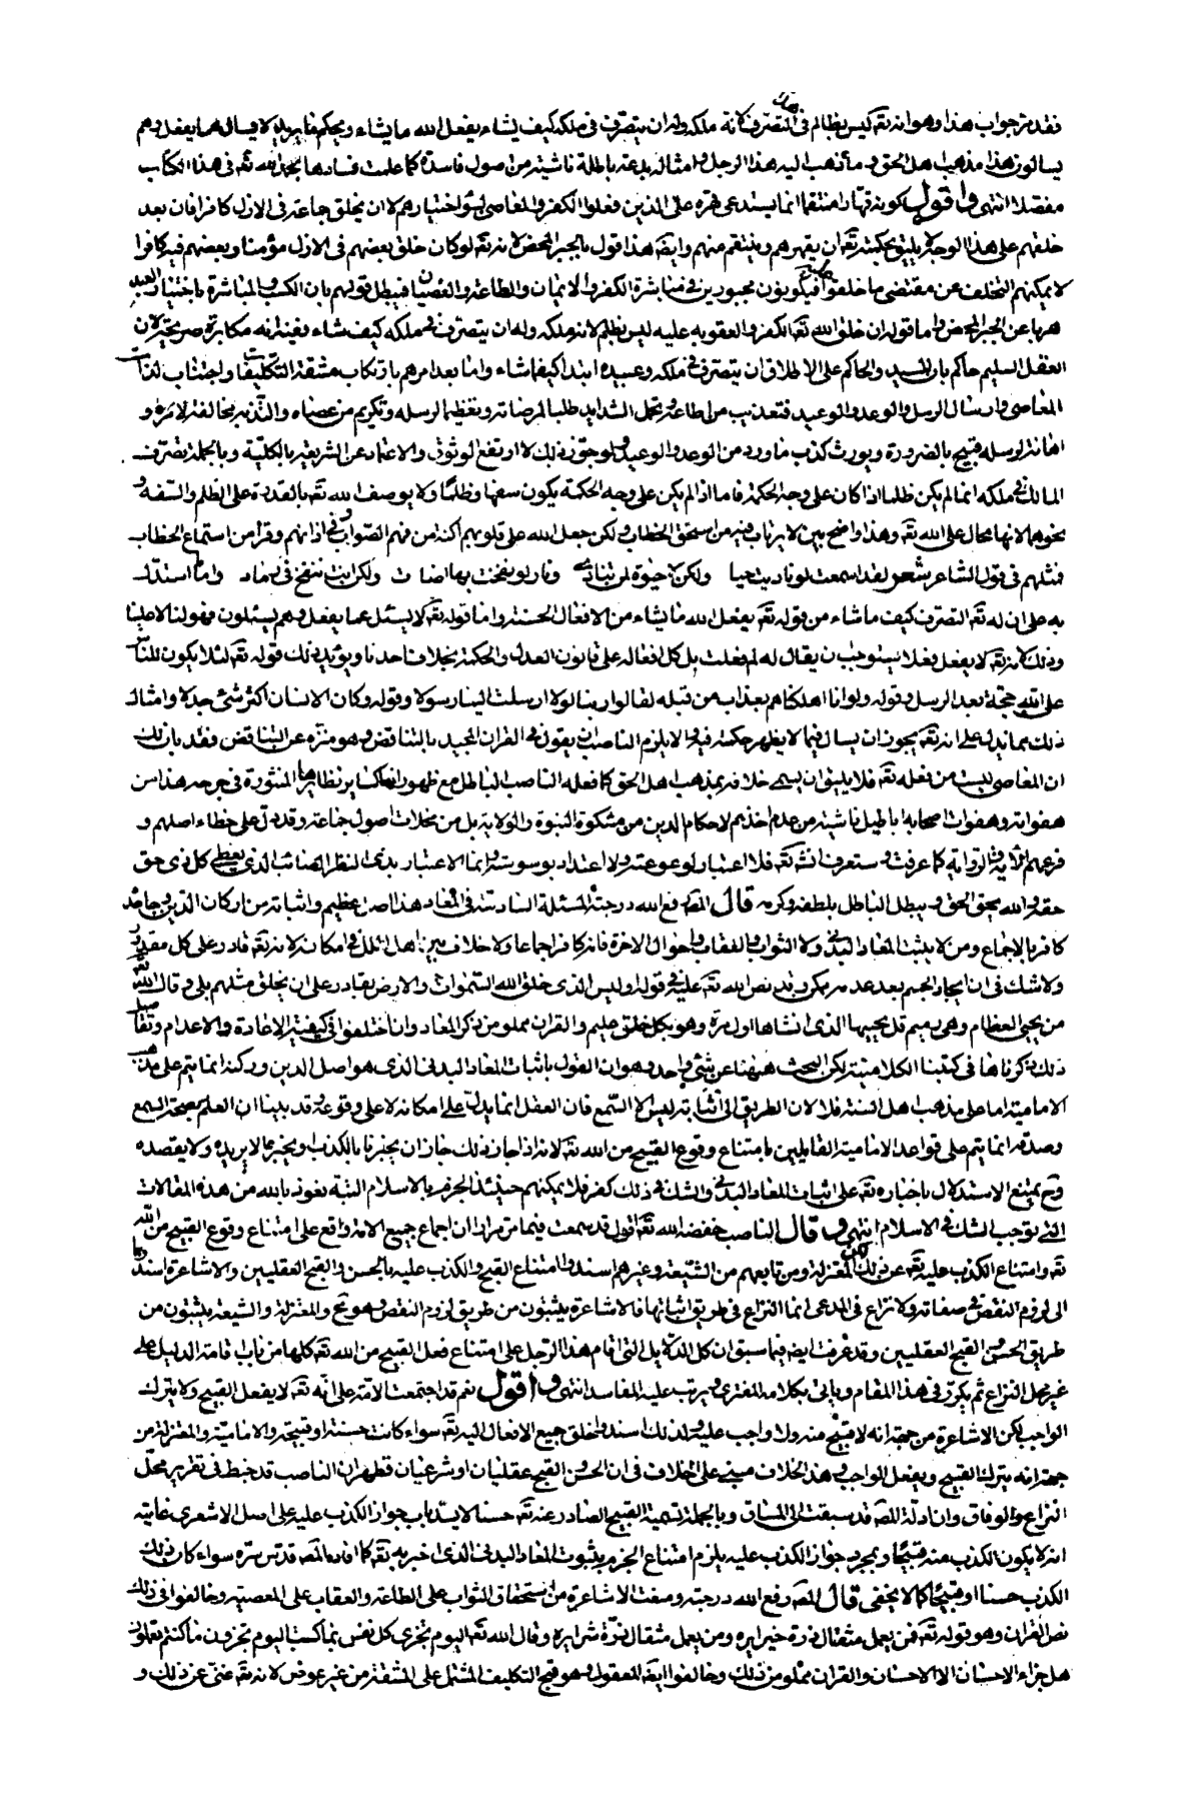 فقد مر جواب هذا وهو انه تعه ليس بظالم فى التصرف لانه ملكه وله ان يتصرف فى ملكه كيف يشاء يفعل الله ما يشاء ويحكم ما يريد لا يسال عما يفعل وهم
يسالون هذا مذهب اهل الحق وما ذهب اليه هذا الرجل وامثاله بدعة باطلة ناشية من صول فاسدة كما علمت فسادها بحمد الله تعه فى هذا الكتاب
مفصلا انتهى واقول كونه قهارا منتقما انما يستدعى قهره على الذين فعلوا الكفر والمعاصى بسؤ اختيارهم لا ان يخلق جماعة فى الازل كافرا فان بعد
خلقهم على هذا الوجه لا يليق بحكمته تعه ان يقهرهم وينتقم منهم وايضه هذا قول بالجبر المحض لانه تعه لو كان خلق بعضهم فى الازل مؤمنا وبعضهم فيه كافرا
لا يمكنهم التخلف عن مقتضى ما خلقوا عليه فيكونون مجبورين فى مباشرة الكفر والايمان والطاعة والعصيان فيبطل قولهم بان الكسب والمباشرة باختيار العبد
هربا عن الجبر المحض واما قوله ان خلق الله تعه الكفر والعقوبه عليه ليس بظلم لانه ملكه وله ان يتصرف فى ملكه كيف شاء ففيه انه مكابرة صريحة لان
العقل السليم حاكم بان للسيد والحاكم على الاطلاق ان يتصرف فى ملكه وعبيده ابتدا كيفما شاء واما بعد امرهم بارتكاب مشقة التكليفات واجتناب لذات
المعاصى وارسال الرسل والوعد والوعيد فتعذيب من اطاعه وتحمل الشدايد طلبا لمرضاته وتعظيما لرسله وتكريم من عصاه والتذ بمخالفة لامره و
اهانة لرسله قبيح بالضرورة ويورث كذب ما ورد من الوعد والوعيد ولو جوز ذلك لارتفع الوثوق والاعتماد عن الشريعة بالكلية وبالجملة تصرف
المالك فى ملكه انما لم يكن ظلما اذا كان على وجه الحكمة فاما اذا لم يكن على وجه الحكمة يكون سفها وظلما ولا يوصف الله تعه بالقدرة على الظلم والسفه و
نحوهما لانها محال على الله تعه وهذا واضح بين لا يرتاب فيه من استحق الخطاب ولكن جعل الله على قلوبهم اكنة من فهم الصواب وفى اذانهم وقرا من استماع الخطاب
فمثلهم فى قول الشاعر شعر لقد اسمعت لو ناديت حيا ولكن لا حيوة لمن تنادى ونار لو نفخت بها اضات ولكن انت تنفخ فى رماد واما ما استدل
به على ان له تعه التصرف كيف ما شاء من قوله تعه يفعل الله ما يشاء من الافعال الحسنة واما قوله تعه لا يسئل عما يفعل وهم يسئلون فهو لنا لا علينا
وذلك لانه تعه لا يفعل فعلا يستوجب ان يقال له لم فعلت بل كل افعاله على قانون العدل والحكمة بخلاف احدنا ويؤيد ذلك قوله تعه لئلا يكون للناس
على الله حجة بعد الرسل وقوله ولو انا اهلكناهم بعذاب من قبله لقالوا ربنا لولا ارسلت الينا رسولا وقوله وكان الانسان اكثر شئ جدلا وامثال
ذلك مما يدل على انه تعه يجوز ان يسال فيما لا يظهر حكمته فيه والا يلزم الناصب ان يقول فى القران المجيد بالتناقض وهو منزه عن التناقض فقد بان لك
ان المعاصى ليست من فعله تعه فلا يليق ان يسمى خلافه بمذهب اهل الحق كما فعله الناصب الباطل مع ظهور انعكاسه نظائرها المنثورة فى جرحه هذا من
هفواته وهفوات اصحابه اباطيل ناشية من عدم اخذهم لاحكام الدين من مشكوة النبوة والولاية بل من نحلات اصول جماعة وقد دل على خطاء اصلهم و
فرعهم الاية والرواية كما عرفت وستعرف انش تعه فلا اعتبار لوعوعته ولا اعتداد بوسوسته وانما الاعتبار بدقة النظر الصائب الذى يعطى كل ذى حق
حقه والله يحق الحق ويبطل الباطل بلطفه وكرمه قال المصه رفع الله درجته المسئلة السادسة فى المعاد هذا اصل عظيم واثباته من اركان الدين وجاحده
كافر بالاجماع ومن لا يثبت المعاد البدنى ولا الثواب والعقاب واحوال الاخرة فانه كافر اجماعا ولا خلاف بين اهل الملل فى امكانه لانه تعه قادر على كل مقدور
ولا شك فى ان ايجاد الجسم بعد عدمه ممكن وقد نص الله تعه عليه فى قوله اوليس الذى خلق الله السموات والارض بقادر على ان يخلق مثلهم بلى وقال الله تعه
من يحيى العظام وهى رميم قل يحييها الذى انشاها اول مرة وهو بكل خلق عليم والقران مملو من ذكر المعاد وان اختلفوا فى كيفية الاعادة والاعدام وتفاصيل
ذلك ذكرناها فى كتبنا الكلامية لكن البحث ههنا عن شئ واحد وهو ان القول باثبات المعاد البدنى الذى هو اصل الدين وركنه انما يتم على مذهب
الامامية اما على مذهب اهل السنة فلا لان الطريق الى اثباته ليس الا السمع فان العقل انما يدل على امكانه لا على وقوعه وقد بينا ان العلم بصحة السمع
وصدقه انما يتم على قواعد الامامية القايلين بامتناع وقوع القبيح من الله تعه لانه اذا جاز ذلك جاز ان يخبرنا بالكذب او يخبر بما لا يريده ولا يقصده
وح يمتنع الاستدلال باخباره تعه على اثبات المعاد البدنى والشك فى ذلك كفر فلا يمكنهم حينئذ الجزم بالاسلام البتة نعوذ بالله من هذه المقالات
التى توجب الشك فى الاسلام انتهى وقال الناصب خفضه الله تعه اقول قد سمعت فيما مر مرارا ان اجماع جميع الامة واقع على امتناع وقوع القبيح من الله
تعه وامتناع الكذب عليه تعه عن ذلك لكن المعتزلة ومن تابعهم من الشيعة وغيرهم اسندوا امتناع القبح والكذب عليه بالحسن والقبح العقليين والاشاعرة اسندوها
الى لزوم النقص فى صفاته ولا نزاع فى المدعى انما النزاع فى طريق اثباتها فالاشاعرة يثبتون من طريق لزوم النقص وهو مح والمعتزلة والشيعة يثبتون من
طريق الحسن والقبح العقليين وقد عرفت ايضه فيما سبق ان كل الدلايل التى اقام هذا الرجل على امتناع فعل القبيح من الله تعه كلها من باب اقامة الدليل على
غير محل النزاع ثم يكرر فى هذا المقام وياتى بكلامه المفترى ويرتب عليه المفاسد انتهى واقول نعم قد اجتمعت الامة على انه تعه لا يفعل القبيح ولا يترك
الواجب لكن الاشاعرة من جهة انه لا قبيح منه ولا واجب عليه ولذلك اسندوا خلق جميع الافعال اليه تعه سواء كانت حسنة او قبيحة والامامية والمعتزلة من
جهة انه يترك القبيح ويفعل الواجب وهذا الخلاف مبنى على الخلاف فى ان الحسن والقبح عقليان او شرعيان فظهر ان الناصب قد خبط فى تقرير محل
النزاع والوفاق وان ادلة المصه قد سبقت الى المساق وبالجملة تسمية القبيح الصادر عنه تعه حسنا لا يسد باب جواز الكذب عليه على اصل الاشعرى غايته
انه لا يكون الكذب منه قبيحا وبمجرد جواز الكذب عليه يلزم امتناع الجزم بثبوت المعاد البدنى الذى اخبر به تعه كما افاده المصه قدس سره سواء كان ذلك
الكذب حسنا او قبيحا كما لا يخفى قال المصه رفع الله درجته ومنعت الاشاعرة من استحقاق الثواب على الطاعة والعقاب على المعصية وخالفوا فى ذلك
نص القران وهو قوله تعه فمن يعمل مثقال ذرة خيرا يره ومن يعمل مثقال ذرة شرا يره وقال الله تعه اليوم تجزى كل نفس بما كسبت اليوم تجزون ما كنتم تعملون
هل جزاء الاحسان الا الاحسان والقران مملو من ذلك وخالفوا ايضه المعقول وهو قبح التكليف المشتمل على المشقة من غير عوض لانه تعه غنى عن ذلك و